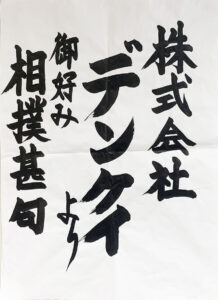 株式会社
デンケイ
より
御好み
相撲甚句